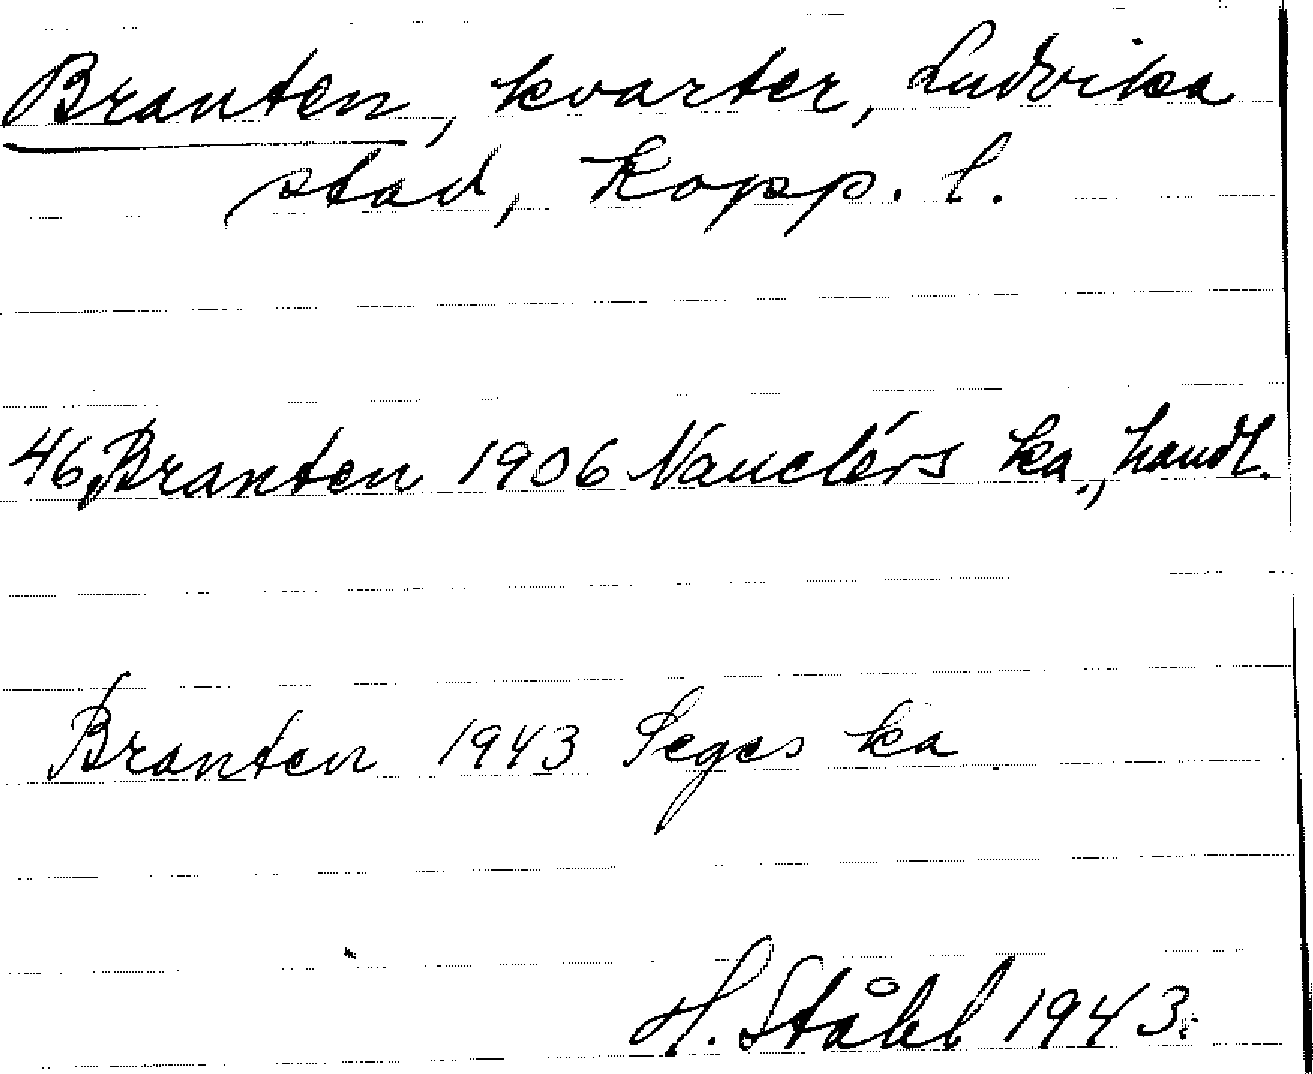 Branten, kvarter, Ludvika
stad, Kopp. l.
46, Branten 1906 Nauclérs ka., handl.
Branten 1943 Seges ka
H. Ståhl 1943.